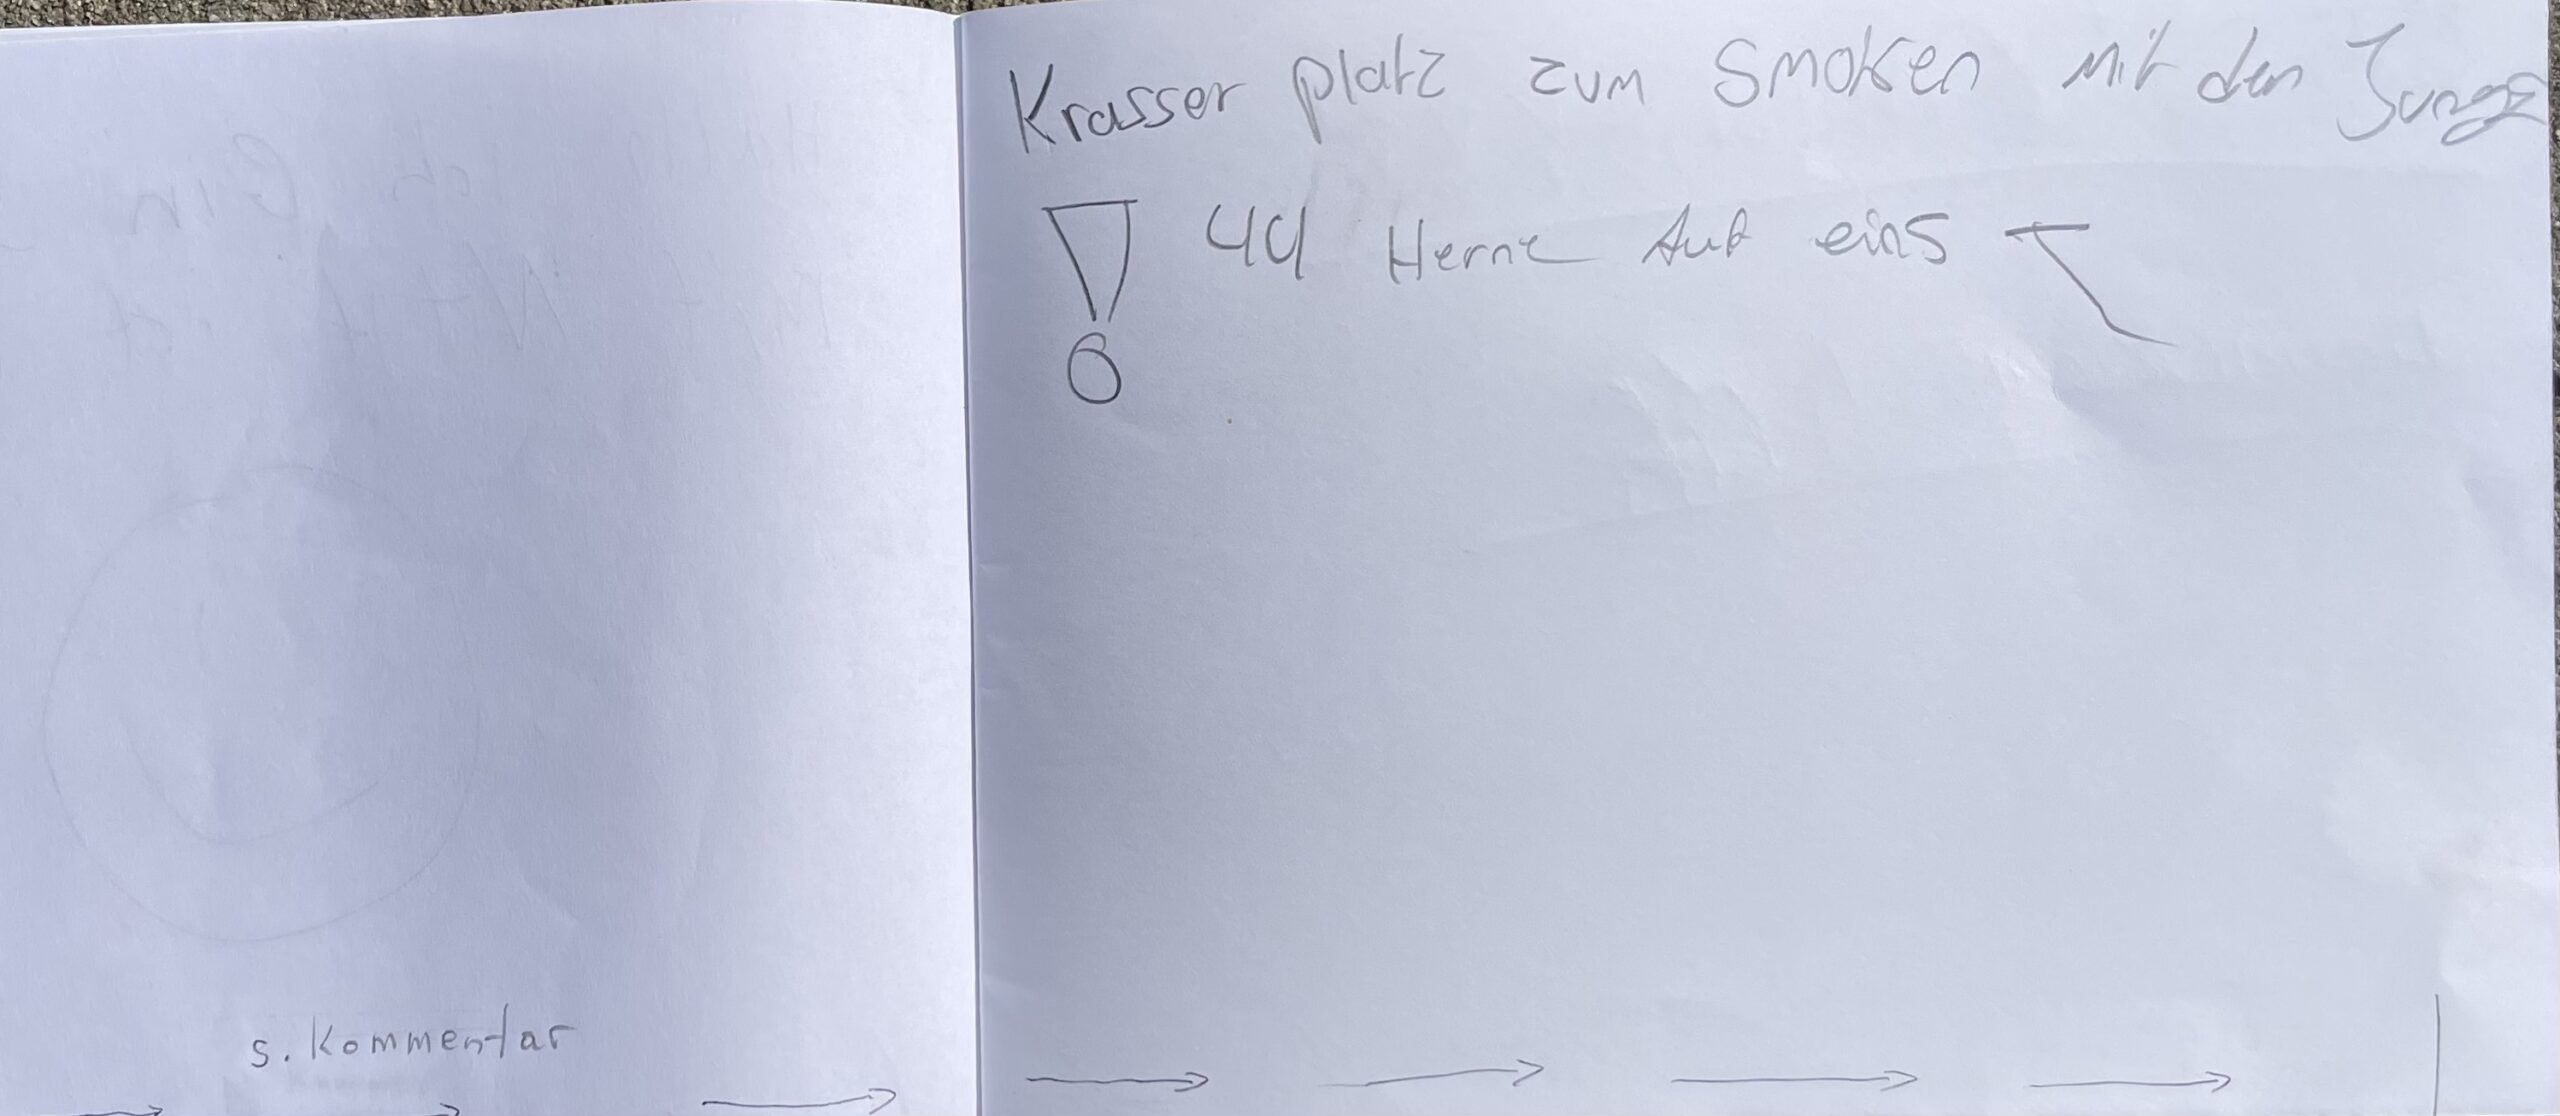 Krasser platz zum Smoken mit den Jungs
! 44 Herne Auf eins
s. Kommentar